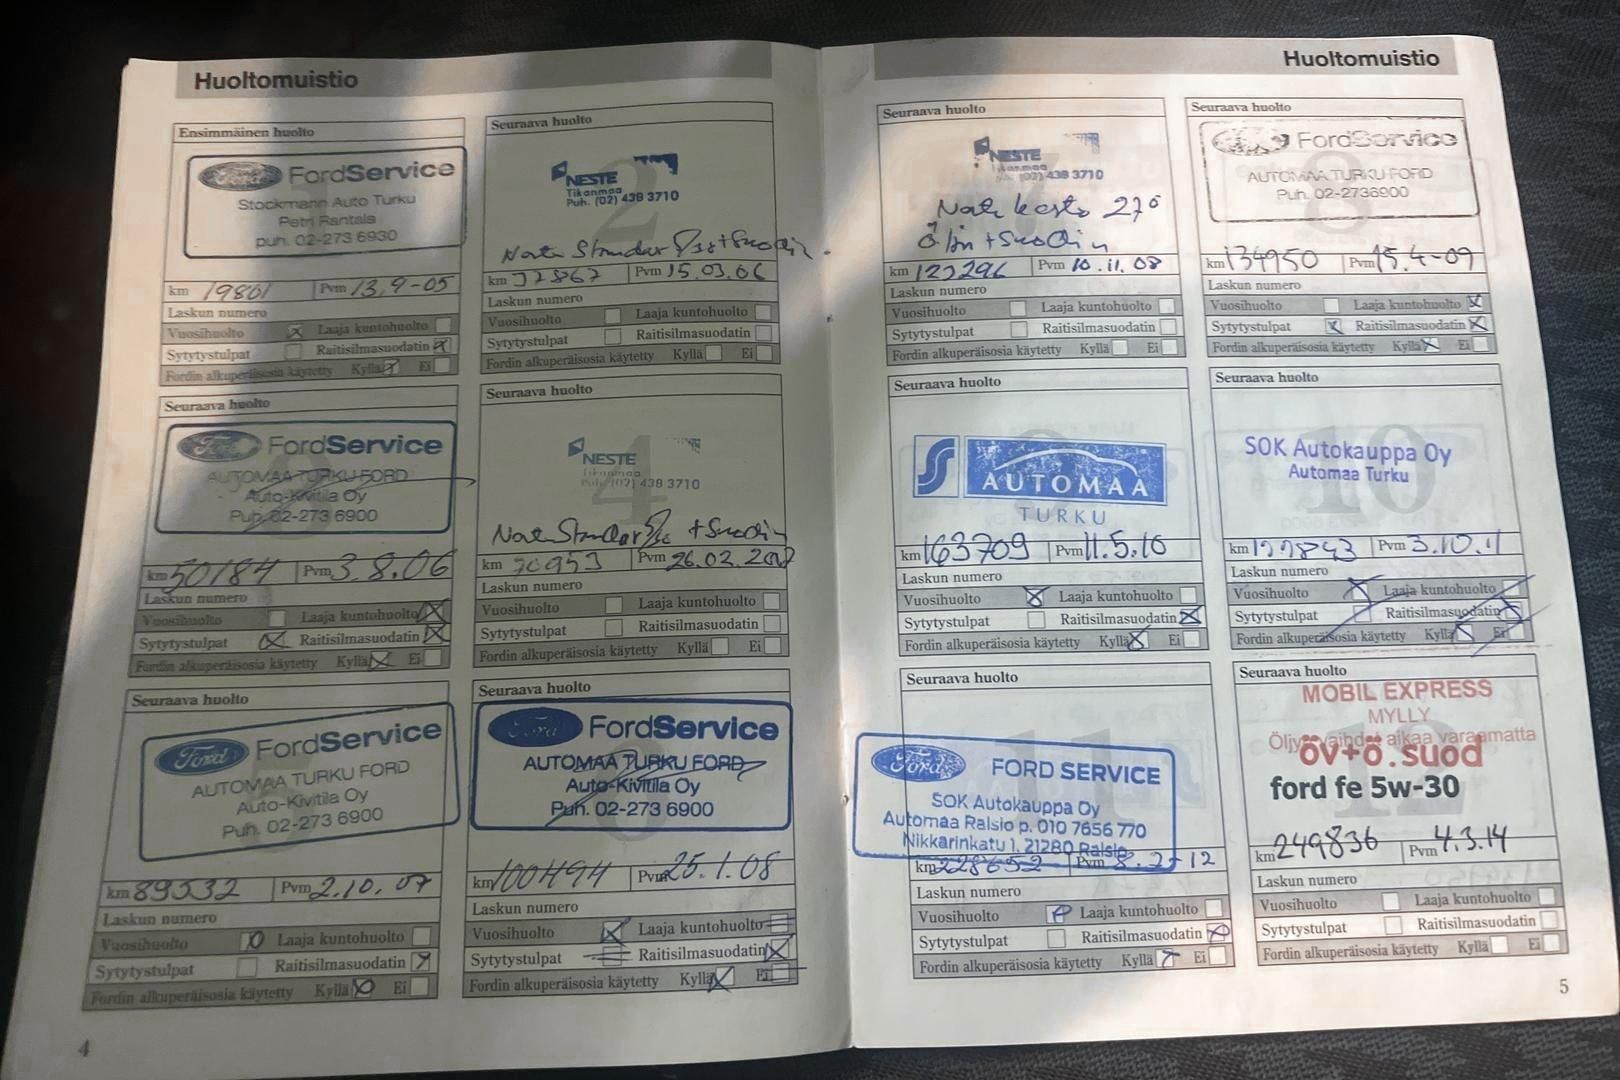 Huoltomuistio
Ensimmäinen huolto
Ford FordService
Stockmann Auto Turku
Petri Rantala
puh. 02-273 6930
km 19801 Pvm 13.9-05
Laskun numero
Vuosihuolto Laaja kuntohuolto
Sytytystulpat Raitisilmasuodatin
Fordin alkuperäisosia käytetty Kyllä Ei
Seuraava huolto
2
NESTE
Tikanmaa
Puh. (02) 438 3710
km 37867 Pvm 15.03.06
Laskun numero
Vuosihuolto Laaja kuntohuolto
Sytytystulpat Raitisilmasuodatin
Fordin alkuperäisosia käytetty Kyllä Ei
Seuraava huolto
Ford FordService
AUTOMAA TURKU FORD
Auto-Kivitila Oy
Puh. 02-273 6900
km 50184 Pvm 3.8.06
Laskun numero
Vuosihuolto Laaja kuntohuolto
Sytytystulpat Raitisilmasuodatin
Fordin alkuperäisosia käytetty Kyllä Ei
Seuraava huolto
4
NESTE
Tikanmaa
Puh. (02) 438 3710
km 70953 Pvm 26.02.2007
Laskun numero
Vuosihuolto Laaja kuntohuolto
Sytytystulpat Raitisilmasuodatin
Fordin alkuperäisosia käytetty Kyllä Ei
Seuraava huolto
Ford FordService
AUTOMAA TURKU FORD
Auto-Kivitila Oy
Puh. 02-273 6900
km 89532 Pvm 2.10.07
Laskun numero
Vuosihuolto Laaja kuntohuolto
Sytytystulpat Raitisilmasuodatin
Fordin alkuperäisosia käytetty Kyllä Ei
Seuraava huolto
6
Ford FordService
AUTOMAA TURKU FORD
Auto-Kivitila Oy
Puh. 02-273 6900
km 100494 Pvm 25.1.08
Laskun numero
Vuosihuolto Laaja kuntohuolto
Sytytystulpat Raitisilmasuodatin
Fordin alkuperäisosia käytetty Kyllä Ei
4
Huoltomuistio
Seuraava huolto
7
NESTE
Tikanmaa
Puh. (02) 438 3710
27°
km Pvm 10.11.08
Laskun numero
Vuosihuolto Laaja kuntohuolto
Sytytystulpat Raitisilmasuodatin
Fordin alkuperäisosia käytetty Kyllä Ei
Seuraava huolto
8
FordService
AUTOMAA TURKU FORD
Puh. 02-2736900
km 134950 Pvm 15.4-09
Laskun numero
Vuosihuolto Laaja kuntohuolto
Sytytystulpat Raitisilmasuodatin
Fordin alkuperäisosia käytetty Kyllä Ei
Seuraava huolto
AUTOMAA
TURKU
km 163709 Pvm 11.5.10
Laskun numero
Vuosihuolto Laaja kuntohuolto
Sytytystulpat Raitisilmasuodatin
Fordin alkuperäisosia käytetty Kyllä Ei
Seuraava huolto
10
SOK Autokauppa Oy
Automaa Turku
km Pvm 3.10.11
Laskun numero
Vuosihuolto Laaja kuntohuolto
Sytytystulpat Raitisilmasuodatin
Fordin alkuperäisosia käytetty Kyllä Ei
Seuraava huolto
11
Ford FORD SERVICE
SOK Autokauppa Oy
Automaa Raisio p. 010 7656 770
Nikkarinkatu 1, 21280 Raisio
km 228652 Pvm 8.2-12
Laskun numero
Vuosihuolto Laaja kuntohuolto
Sytytystulpat Raitisilmasuodatin
Fordin alkuperäisosia käytetty Kyllä Ei
Seuraava huolto
12
MOBIL EXPRESS
MYLLY
Öljynvaihdot aikaa varaamatta
öv+ö.suod
ford fe 5w-30
km 249836 Pvm 4.3.14
Laskun numero
Vuosihuolto Laaja kuntohuolto
Sytytystulpat Raitisilmasuodatin
Fordin alkuperäisosia käytetty Kyllä Ei
5